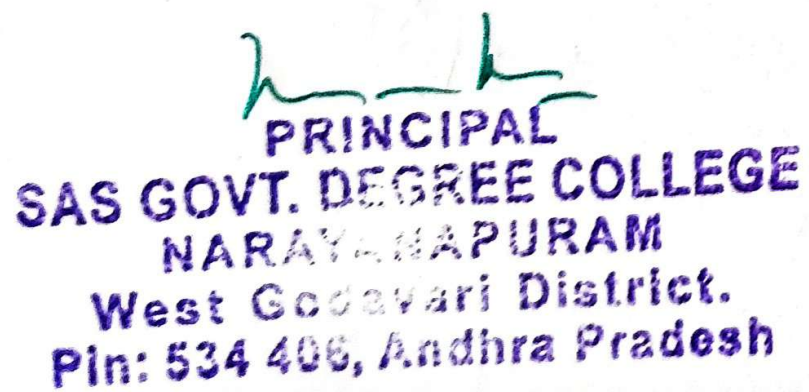 PRINCIPAL
SAS GOVT. DEGREE COLLEGE
NARAYANAPURAM
West Godavari District.
Pin: 534 406, Andhra Pradesh